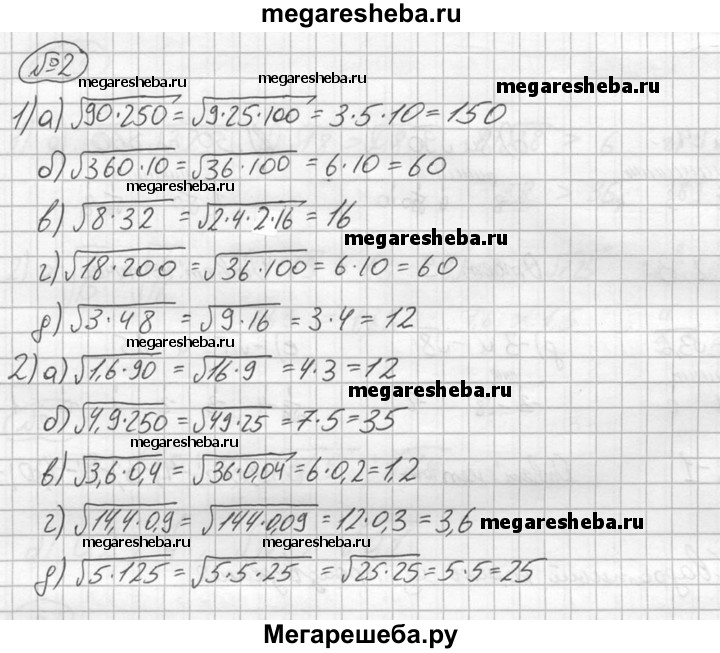 megaresheba.ru
№2
megaresheba.ru megaresheba.ru megaresheba.ru
1) а) √90·250 = √9·25·100 = 3·5·10 = 150
б) √360·10 = √36·100 = 6·10 = 60
megaresheba.ru
в) √8·32 = √2·4·2·16 = 16
megaresheba.ru
г) √18·200 = √36·100 = 6·10 = 60
д) √3·48 = √9·16 = 3·4 = 12
megaresheba.ru
2) а) √1,6·90 = √16·9 = 4·3 = 12
megaresheba.ru
б) √4,9·250 = √49·25 = 7·5 = 35
megaresheba.ru
в) √3,6·0,4 = √36·0,04 = 6·0,2 = 1,2
г) √14,4·0,9 = √144·0,09 = 12·0,3 = 3,6
megaresheba.ru
megaresheba.ru megaresheba.ru
д) √5·125 = √5·5·25 = √25·25 = 5·5 = 25
Мегарешеба.ру